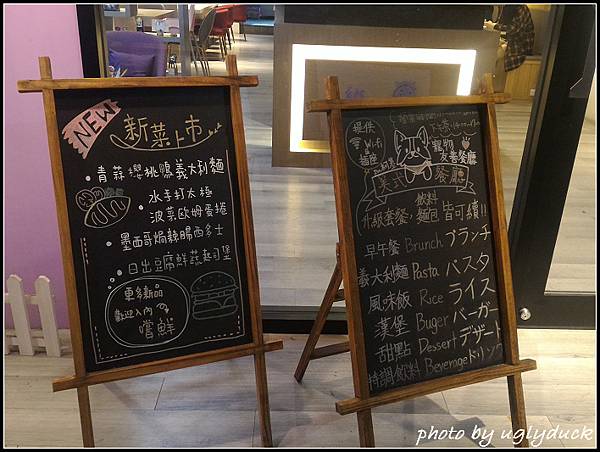 NEW
新菜上市
• 青蒜櫻桃鴨義大利麵
• 水手打太極
波菜歐姆蛋捲
• 墨西哥焗辣腸西多士
• 日出豆腐鮮蔬起司堡
更多新品
歡迎入內
嚐鮮
提供
Wi-Fi
插座
寵物
友善餐廳
美式餐廳
飲料
升級套餐,麵包皆可續!!
早午餐 Brunch ブランチ
義大利麵 Pasta パスタ
風味飯 Rice ライス
漢堡 Buger バーガー
甜點 Dessert デザート
特調飲料 Beverage ドリンク
photo by uglyduck